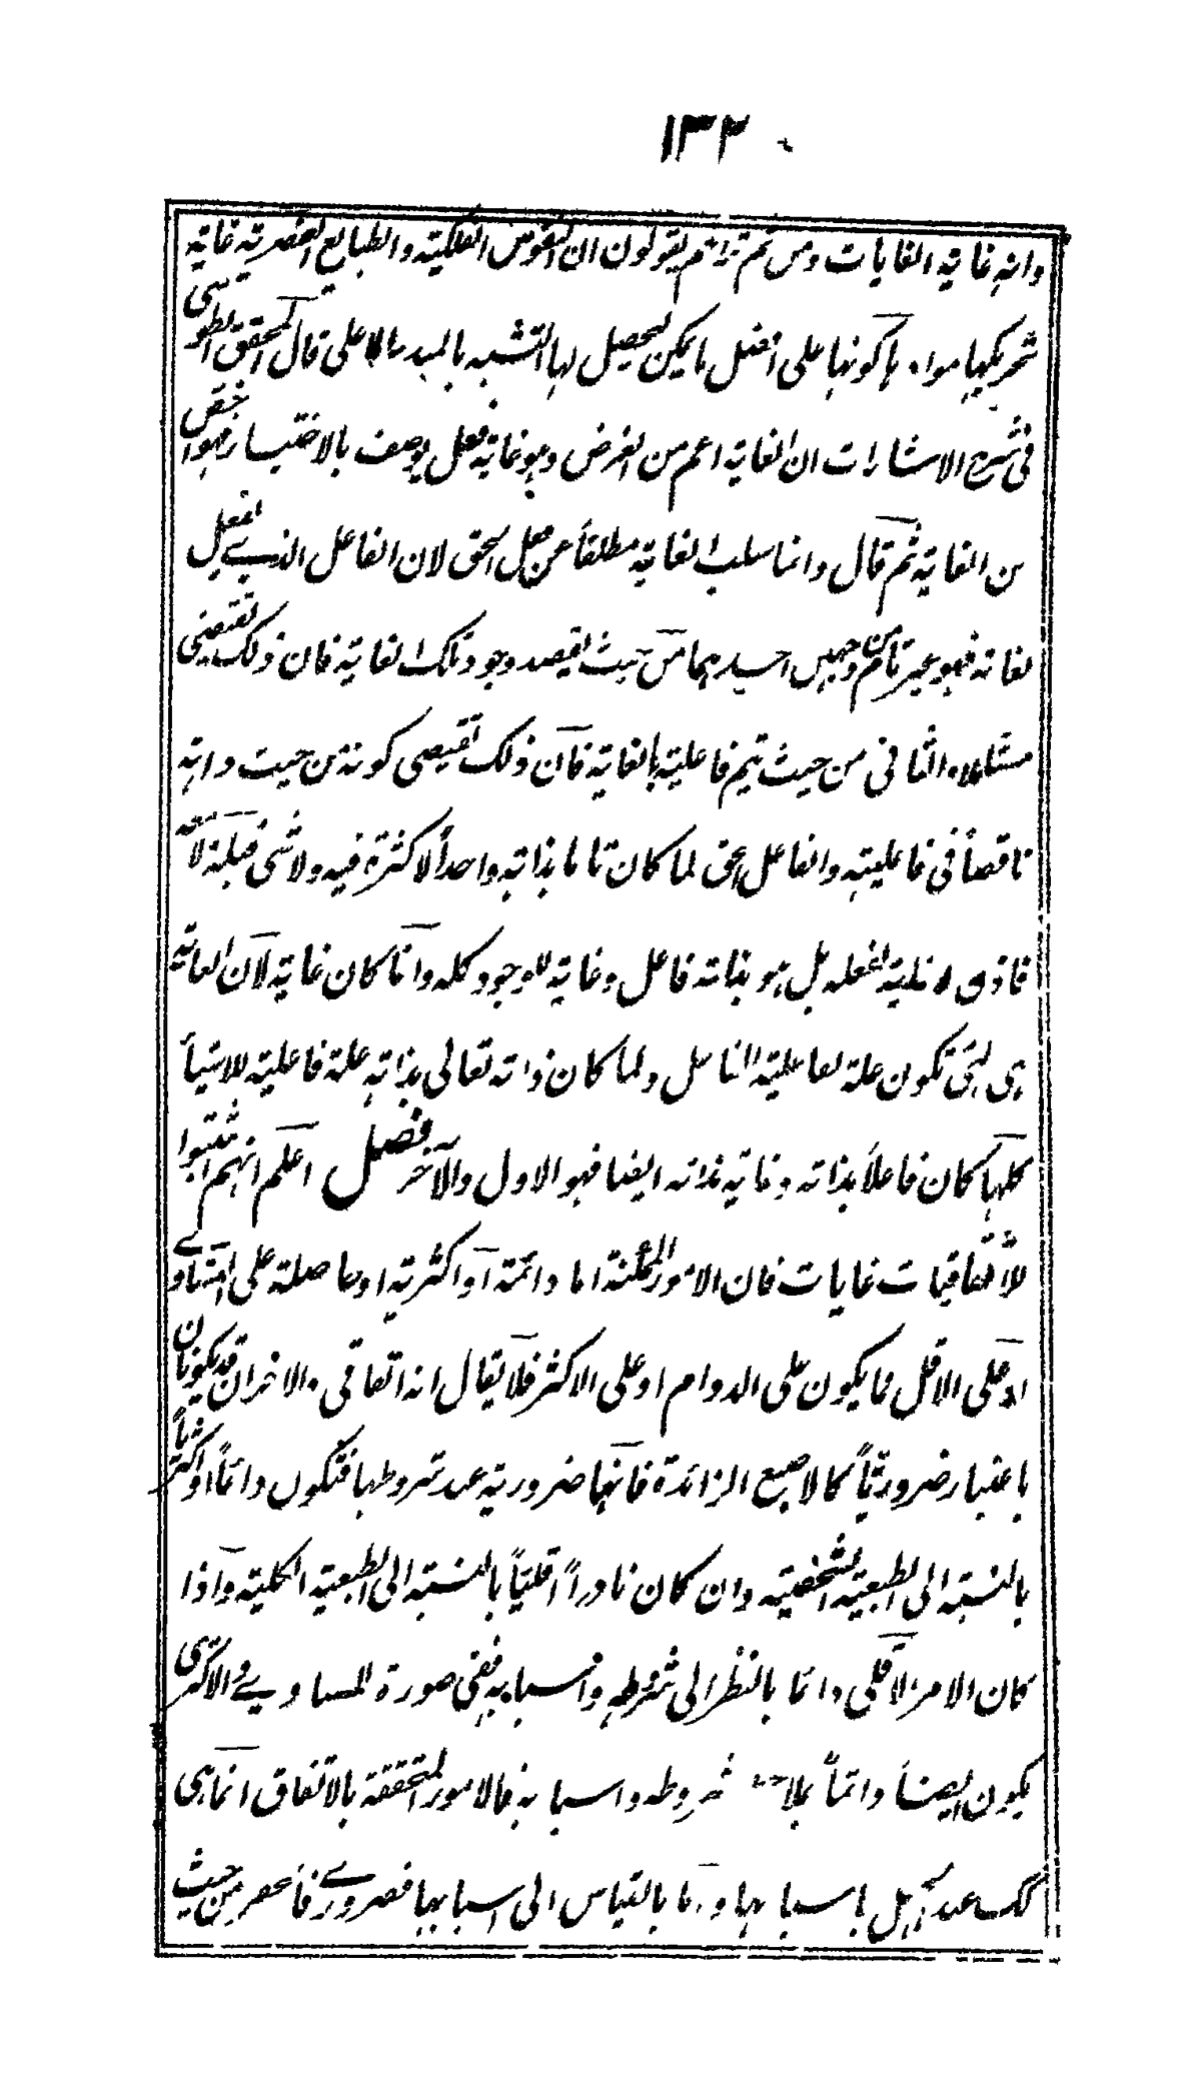 ١٣٢
وانه غاية الغايات ومن ثم تراهم يقولون ان النفوس الفلكية والطبايع العنصرية غاية
تحريكها موادها كونها على افضل ما يمكن ليحصل لها التشبه بالمبدء الاعلى قال المحقق الطوسى
فى شرح الاشارات ان الغاية اعم من الغرض وهو غاية فعل يوصف بالاختيار فهو اخص
من الغاية ثم قال وانما سلب الغاية مطلقاً عن فعل الحق لان الفاعل الذي يفعل
لغاية فهو غير تام من وجهين احدهما من حيث يقصد وجود تلك الغاية فان ذلك يقتضى
مستكملا والثانى من حيث يتم فاعليته بالغاية فان ذلك تقتضى كونه من حيث ذاته
ناقصاً فى فاعليته والفاعل الحق لما كان تاما بذاته واحداً لا كثرة فيه ولا شى قبله
فاذن لا غاية لفعله بل هو بذاته فاعل وغاية للوجود كله وانما كان غاية لان الغاية
هى التى تكون علة لفاعلية الفاعل ولما كان ذاته تعالى بذاته علة فاعلية للاشياء
كلها كان فاعلاً بذاته وغاية بذاته ايضا فهو الاول والآخر فصل اعلم انهم اثبتوا
للاتفاقيات غايات فان الامور الممكنة اما دائمة او اكثرية او حاصلة على التساوي
او على الاقل فما يكون على الدوام او على الاكثر فلا يقال انه اتفاقى والاخران قد يكونان
باعتبار ضرورياً كالاصبع الزائدة فانها ضرورية عند شروطها فتكون دائماً او اكثرياً
بالنسبة الى الطبيعة الشخصية وان كان نادراً اقلياً بالنسبة الى الطبيعة الكلية واذا
كان الامر الاقلى دائما بالنظر الى شروطه واسبابه ففى صورة المساوي والاكثرى
يكون ايضاً دائماً بملاحظة شروطه واسبابه فالامور المتحققة بالاتفاق انما هى
كك عند الجهل باسبابها واما بالقياس الى اسبابها فضروري فانحصر من حيث